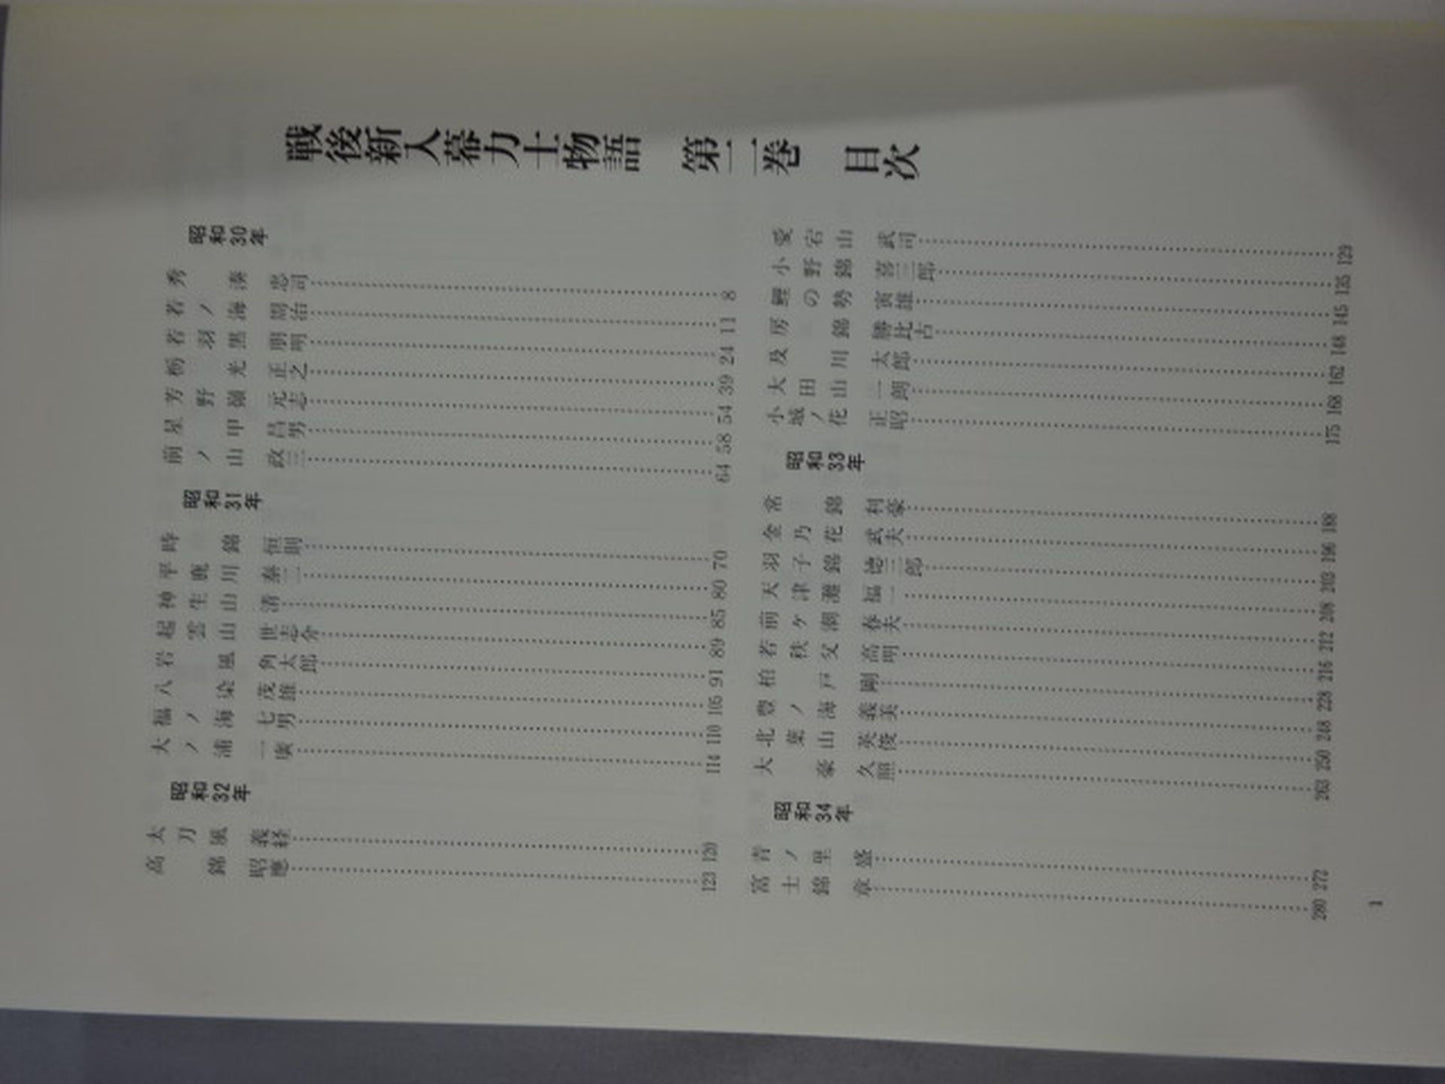 戦後新入幕力士物語 第二巻 目次
昭和30年
秀湊 忠司 8
若ノ海 周治 11
若羽黒 朋明 24
栃光 正之 39
芳野嶺 元志 54
星甲 昌男 58
前ノ山 政三 64
昭和31年
時錦 恒則 70
平鹿川 泰二 80
神生山 清 85
起雲山 世志介 89
岩風 角太郎 91
八染 茂雄 105
福ノ海 七男 110
大ノ浦 一廣 114
昭和32年
太刀風 義経 120
高錦 昭應 123
愛宕山 武司 129
小野錦 喜三郎 135
鯉の勢 寅雄 145
房錦 勝比古 148
及川 太郎 162
大田山 一朗 168
小城ノ花 正昭 175
昭和33年
常錦 利豪 188
金乃花 武夫 196
羽子錦 徳三郎 203
天津灘 福一 208
前ケ潮 春夫 212
若秩父 高明 216
柏戸 剛 228
豊ノ海 義美 248
北葉山 英俊 250
大豪 久照 263
昭和34年
青ノ里 盛 272
富士錦 章 280
1